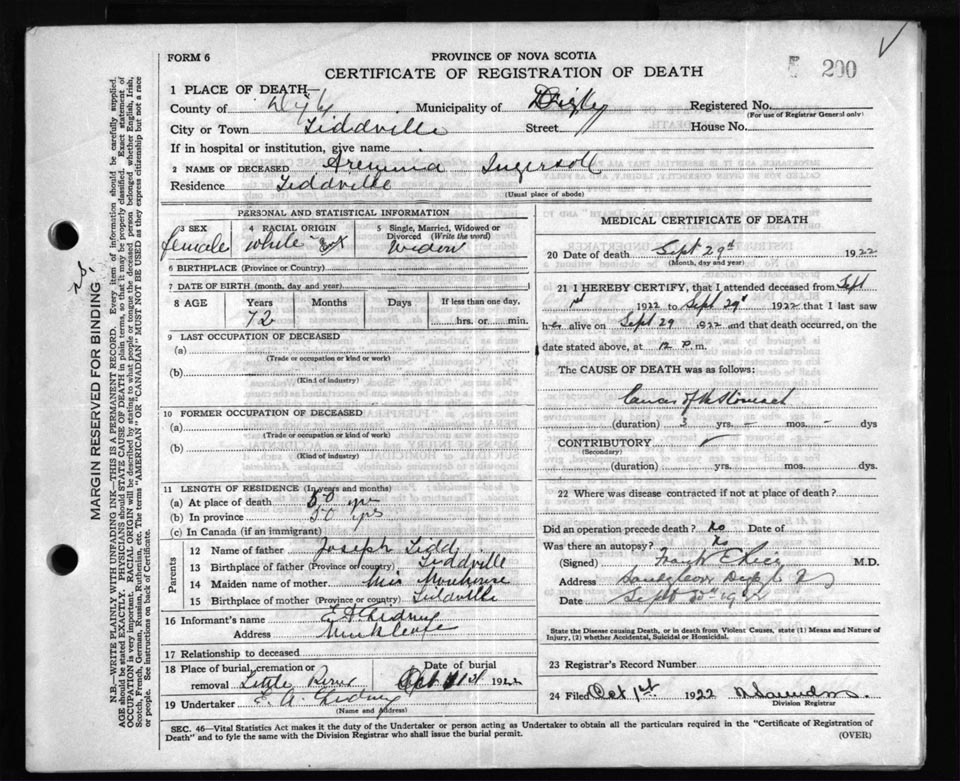 FORM 6
PROVINCE OF NOVA SCOTIA
200
CERTIFICATE OF REGISTRATION OF DEATH
1 PLACE OF DEATH
County of Digby Municipality of Digby Registered No.
(For use of Registrar General only)
City or Town Tiddville Street House No.
If in hospital or institution, give name
2 NAME OF DECEASED Aremina Ingersoll
Residence Tiddville
(Usual place of abode)
PERSONAL AND STATISTICAL INFORMATION
3 SEX 4 RACIAL ORIGIN 5 Single, Married, Widowed or Divorced (Write the word)
female white Widow
6 BIRTHPLACE (Province or Country)
7 DATE OF BIRTH (month, day and year)
8 AGE Years Months Days If less than one day,
72 hrs. or min.
9 LAST OCCUPATION OF DECEASED
(a)
(Trade or occupation or kind of work)
(b)
(Kind of industry)
10 FORMER OCCUPATION OF DECEASED
(a)
(Trade or occupation or kind of work)
(b)
(Kind of industry)
11 LENGTH OF RESIDENCE (In years and months)
(a) At place of death 50 yrs
(b) In province 50 yrs
(c) In Canada (if an immigrant)
Parents
12 Name of father Joseph Tidd
13 Birthplace of father (Province or country) Tiddville
14 Maiden name of mother Miss
15 Birthplace of mother (Province or country) Tiddville
16 Informant's name
Address
17 Relationship to deceased
18 Place of burial, cremation or Date of burial
removal Little River Oct 1st 1922
19 Undertaker E. A.
(Name and Address)
MEDICAL CERTIFICATE OF DEATH
20 Date of death Sept 29th 1922
(Month, day and year)
21 I HEREBY CERTIFY, that I attended deceased from Sept
1st 1922 to Sept 29th 1922 that I last saw
her alive on Sept 29 1922 and that death occurred, on the
date stated above, at 12 P. m.
The CAUSE OF DEATH was as follows:
Cancer of the Stomach
(duration) 3 yrs. – mos. – dys
CONTRIBUTORY
(Secondary)
(duration) yrs. mos. dys.
22 Where was disease contracted if not at place of death?
Did an operation precede death? No Date of
Was there an autopsy? No
(Signed) Frank E Rice M.D.
Address
Date Sept
State the Disease causing Death, or in death from Violent Causes, state (1) Means and Nature of
Injury, (2) whether Accidental, Suicidal or Homicidal.
23 Registrar's Record Number
24 Filed Oct 1st 1922
Division Registrar
SEC. 46—Vital Statistics Act makes it the duty of the Undertaker or person acting as Undertaker to obtain all the particulars required in the "Certificate of Registration of
Death" and to fyle the same with the Division Registrar who shall issue the burial permit.
(OVER)
MARGIN RESERVED FOR BINDING
N.B.—WRITE PLAINLY WITH UNFADING INK—THIS IS A PERMANENT RECORD. Every item of information should be carefully supplied.
AGE should be stated EXACTLY. PHYSICIANS should STATE CAUSE OF DEATH in plain terms, so that it may be properly classified. Exact statement of
OCCUPATION is very important. RACIAL ORIGIN will be described by stating to what people or tongue the deceased person belonged whether English, Irish,
Scotch, French, German, Russian, Ruthenian, etc. The terms "AMERICAN" OR "CANADIAN" MUST NOT BE USED as they express citizenship but not a race
or people. See instructions on back of Certificate.